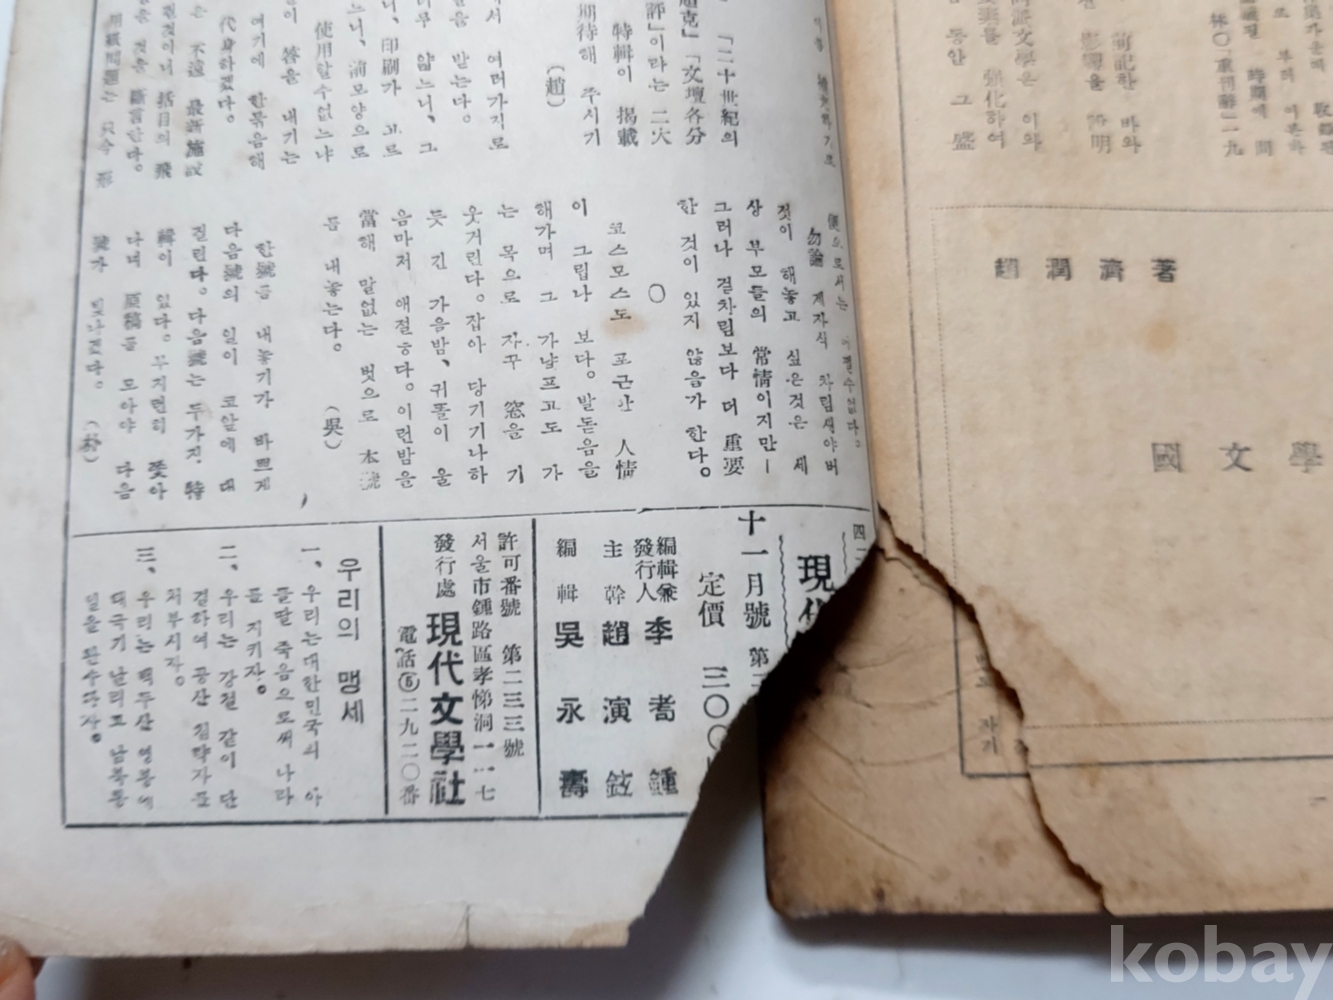 「二十世紀의
「文壇各分
評」이라는 二大
特輯이 揭載
期待해 주시기
(趙)
서 여러가지로
을 받는다.
얇느니, 그
느니, 印刷가 고르
使用할수없느냐
答을 내기는
여기에 한묶음해
代身하겠다.
不遠 最新施設
括目의 飛
것을 斷言한다.
勿論 제자식 차림생야 버
젓이 해놓고 싶은것은 세
상 부모들의 常情이지만—
그러나 겉차림보다 더 重要
한 것이 있지 않음가 한다.
○
코스모스도 포근한 人情
이 그립나 보다. 발돋음을
해가며 그 가냘프고도 가
는 목으로 자꾸 窓을 기
웃거린다. 잡아 당기기나하
듯 긴 가을밤, 귀뚤이 울
음마저 애절ㅎ다. 이런밤을
當해 말없는 벗으로 本號
를 내놓는다. (吳)
한號를 내놓기가 바쁘게
다음號의 일이 코앞에 대
질린다. 다음號는 두가지 特
輯이 있다. 부지런히 쫓아
다녀 原稿를 모아야 다음
號가 빛나겠다. (朴)
現代
十一月號
定價 三〇〇
編輯兼發行人 李耉鍾
主幹 趙演鉉
編輯 吳永壽
許可番號 第二三三號
서울市鍾路區孝悌洞一一七
發行處 現代文學社
電話⑤二九二〇番
우리의 맹세
一、우리는 대한민국의 아
들딸 죽음으로써 나라
를 지키자.
二、우리는 강철 같이 단
결하여 공산 침략자를
처부시자.
三、우리는 백두산 영봉에
태극기 날리고 남북통
일을 완수하자.
前記한 바와
影響을 闡明
文學은 이와
强化하여
동안 그 盛
趙潤濟著
國文學
kobay